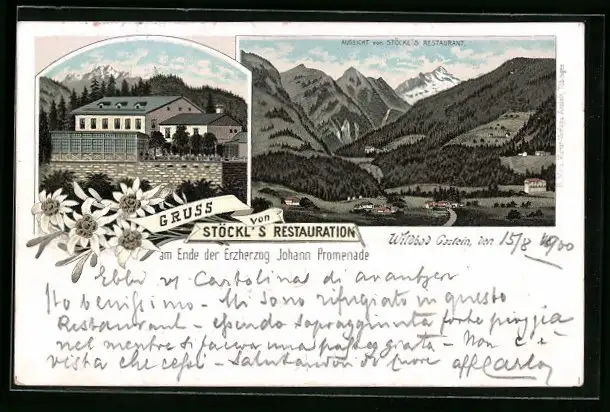 AUSSICHT von STÖCKL'S RESTAURANT.
GRUSS
von
STÖCKL'S RESTAURATION
am Ende der Erzherzog Johann Promenade
Wildbad Gastein, den 15/8 1900
Ebbi vs Cartolina di
Sto benissimo - Mi sono rifugiato in questo
Restaurant - essendo sopraggiunta forte pioggia
nel mentre si faceva una passeggiata - Non c'è
vista che cessi - Salutandovi di cuore aff Carlo